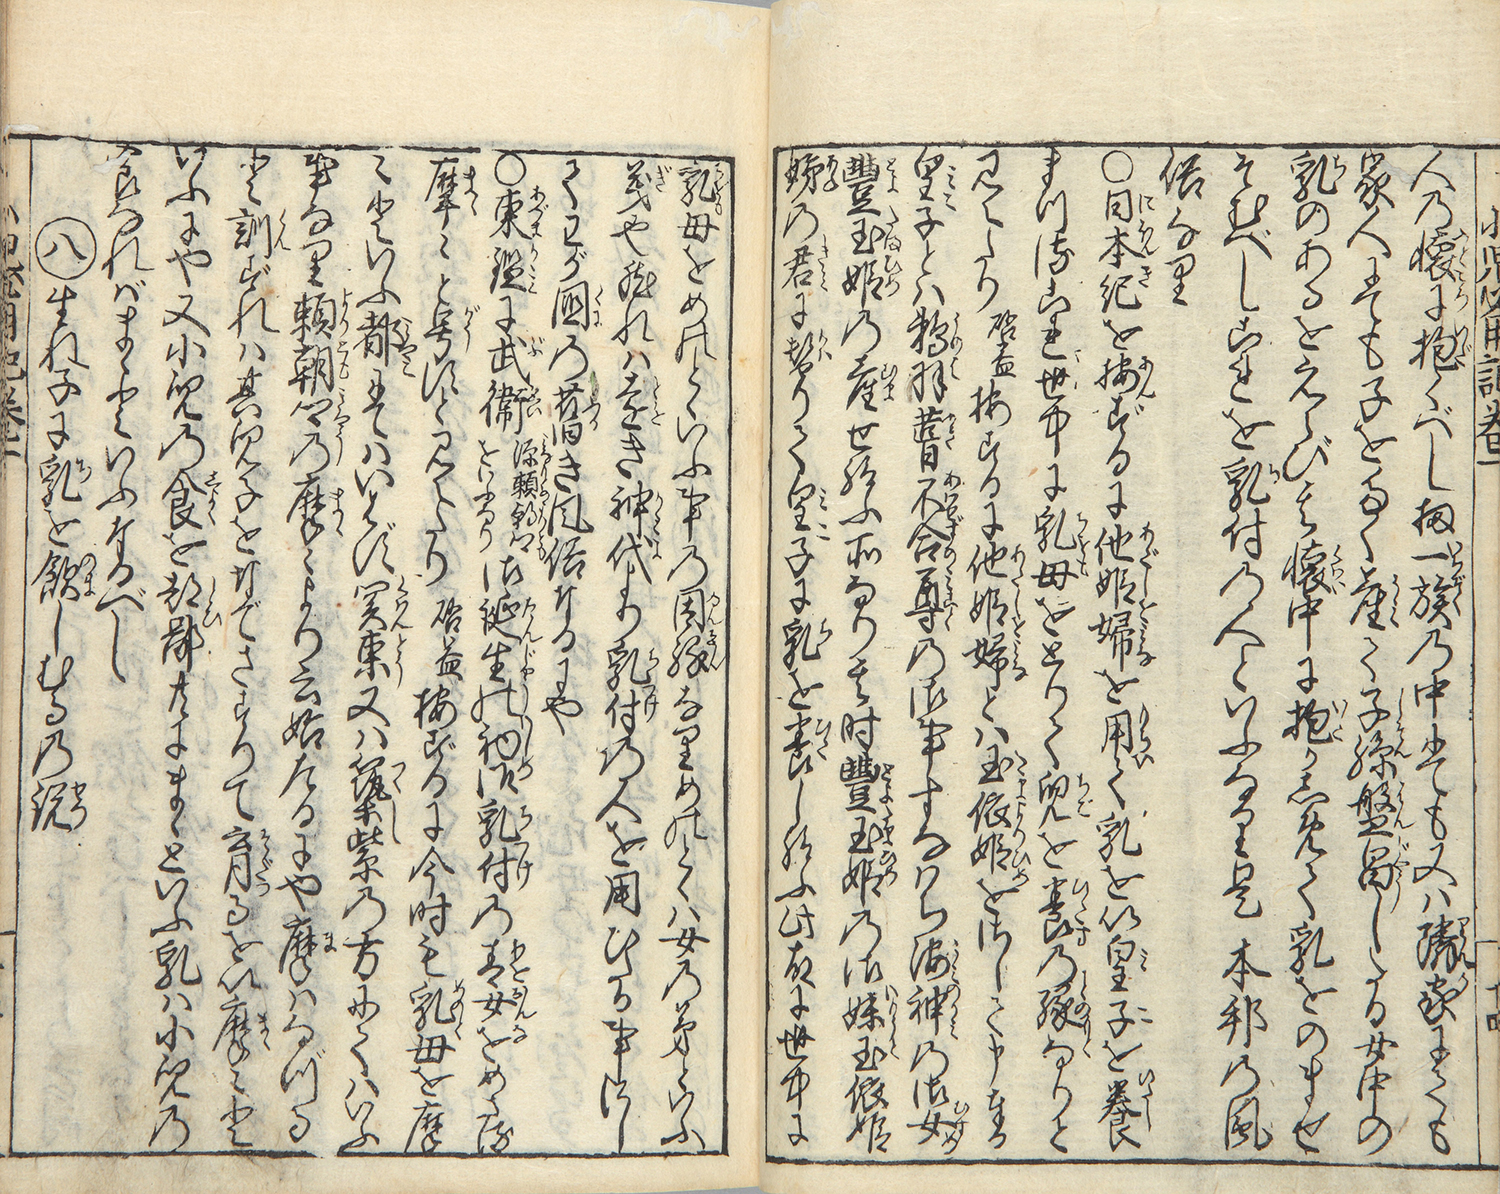 人乃懐に抱くべし扨一族乃中にても又ハ隣家にても
家人にても子を多く産て子孫盤昌したる女中の
乳のあるをえらび其懐中に抱かしめて乳をのませ
そむべしこれを乳付の人といふなり是 本邦乃風
俗なり
〇日本紀を按ずるに他姫婦を用て乳を以皇子を養
まつる是世中に乳母をとりて児を養乃縁なりと
見へたり 啓益按ずるに他姫婦とハ玉依姫を
皇子とハ鵜羽葺不合尊乃御事すなハち海神乃御女
豊玉姫乃産せ給ふ所なり其時豊玉姫乃御妹玉依姫
姆乃君に替りて皇子に乳を養し給ふ此故に世中に
乳母をめのとゝいふ事乃因縁なりめのとハ女乃弟といふ
義や然れハ遠き神代より乳付乃人を用ひたる事
てわが国乃昔き風俗なるにや
〇東鑑に武衛 源頼朝公をいふなり 御誕生乃初御乳付乃青女をめさる
摩々と号すと見へたり 啓益按ずるに今時も乳母を摩
々といふ都にてハいはず関東又ハ筑紫乃方にてハいふ
事なり頼朝公乃摩々より云始たるにや摩ハなづる
と訓ずれハ其児子をなでさすりて育るを以摩々と
いふにや又小児乃食を都鄙共にまゝといふ乳ハ小児乃
食なれバまゝといふなるべし
八 生れ子に乳を飲しむる乃説